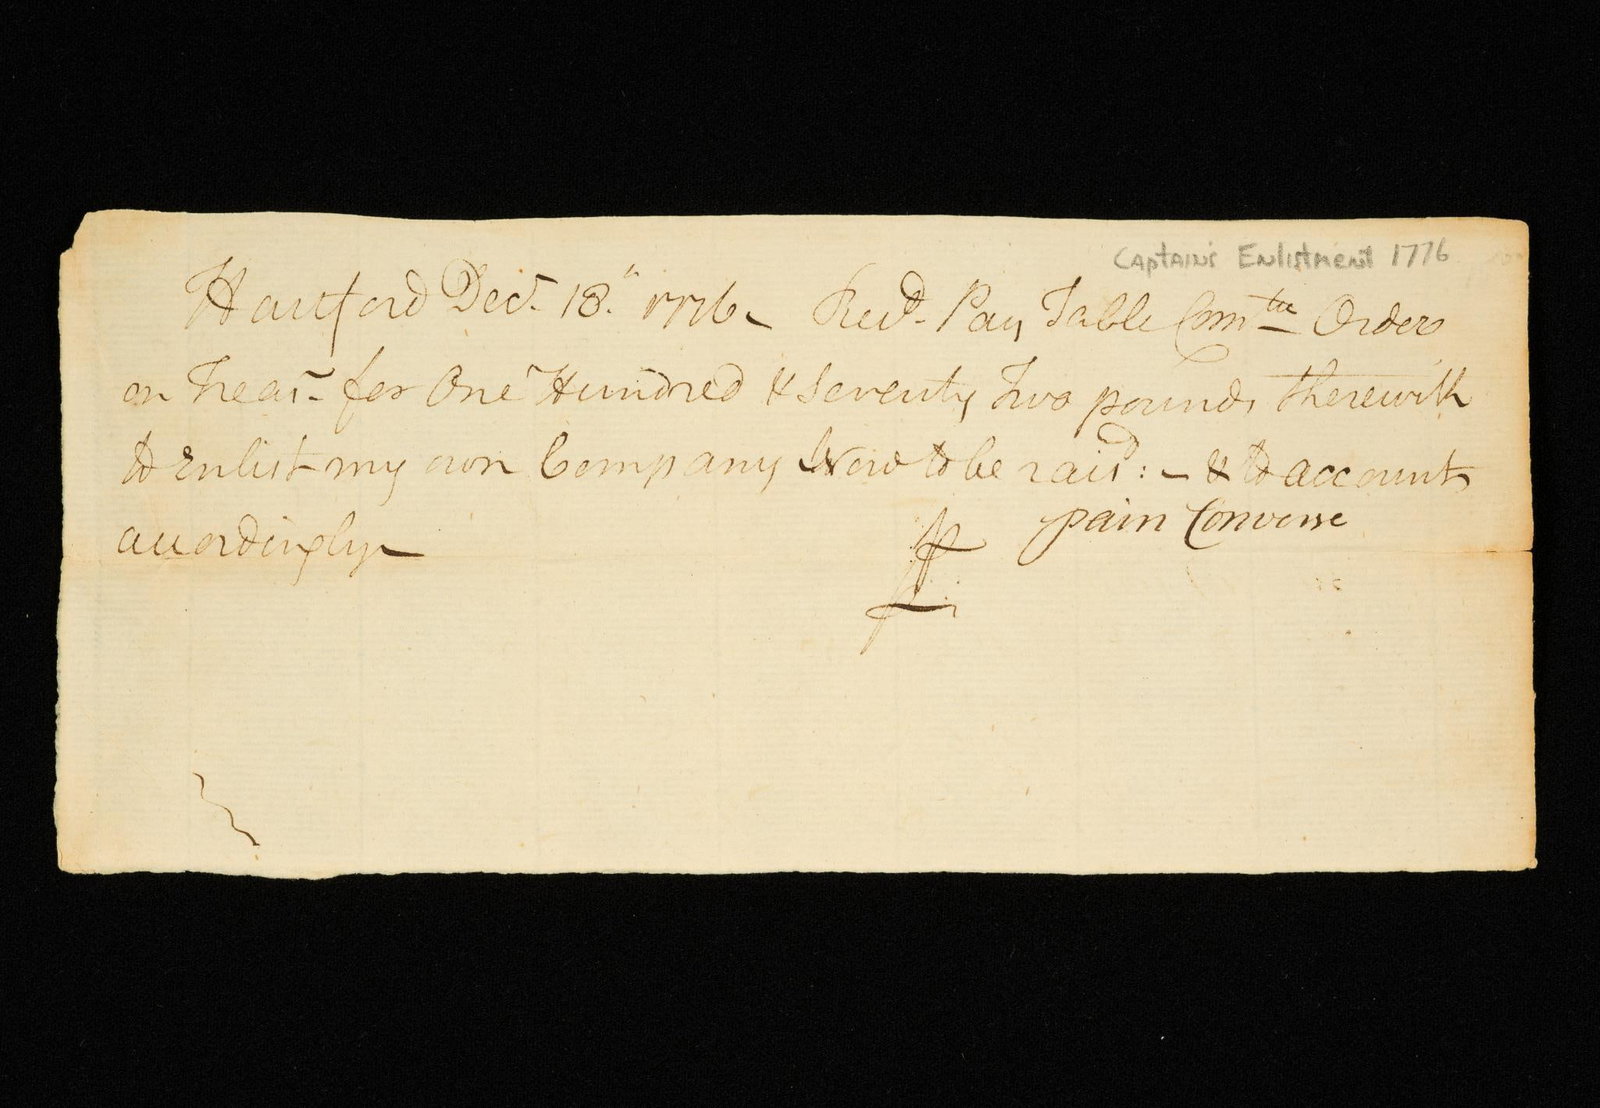 Captain's Enlistment 1776
Hartford Decr. 18th 1776 Recd. Pay Table Comtte Order
on Treasr for One Hundred & Seventy Two pounds therewith
to Enlist my own Company Now to be raisd: - & to account
accordingly
Pain Converse